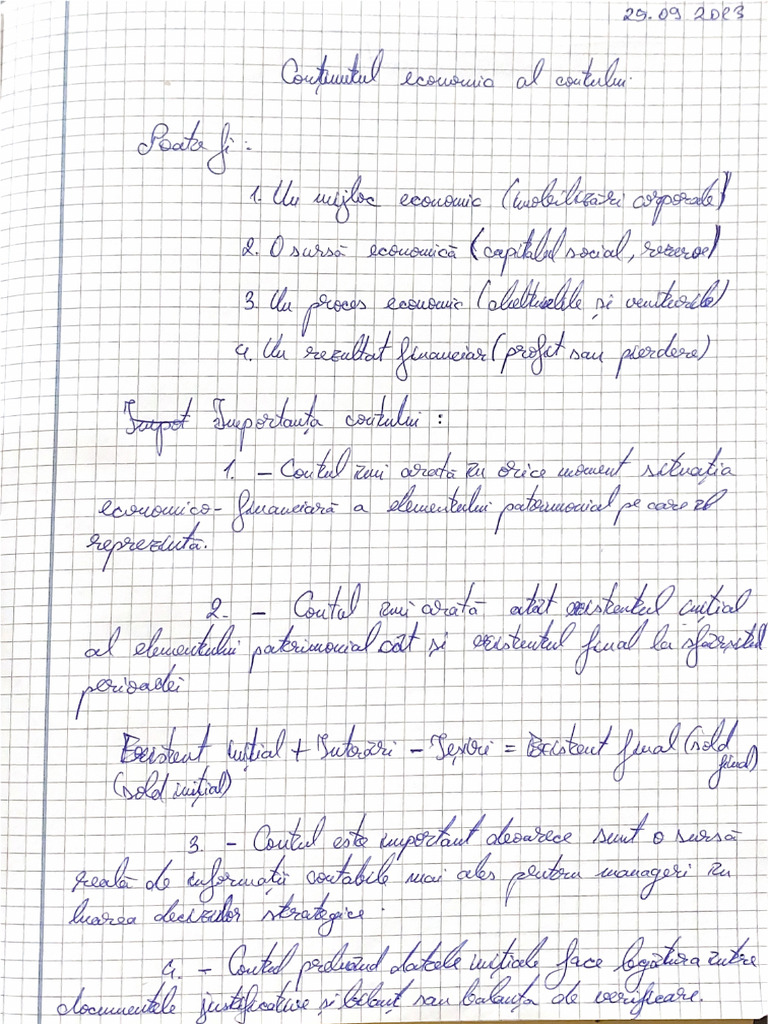 29.09 2023
Conținutul economic al contului
Poate fi:
1. Un mijloc economic (imobilizări corporale)
2. O sursă economică (capitalul social, rezerve)
3. Un proces economic (cheltuielile și veniturile)
4. Un rezultat financiar (profit sau pierdere)
Impot Importanța contului :
1. - Contul îmi arată în orice moment situația
economico-financiară a elementului patrimonial pe care îl
reprezintă.
2. - Contul îmi arată atât existentul inițial
al elementului patrimonial cât și existentul final la sfârșitul
perioadei
Existent inițial + Intrări - Ieșiri = Existent final (sold
final)
(sold inițial)
3. - Contul este important deoarece sunt o sursă
reală de informații contabile mai ales pentru manageri în
luarea deciziilor strategice.
4. - Contul preluând datele inițiale face legătura între
documentele justificative și bilanț sau balanța de verificare.